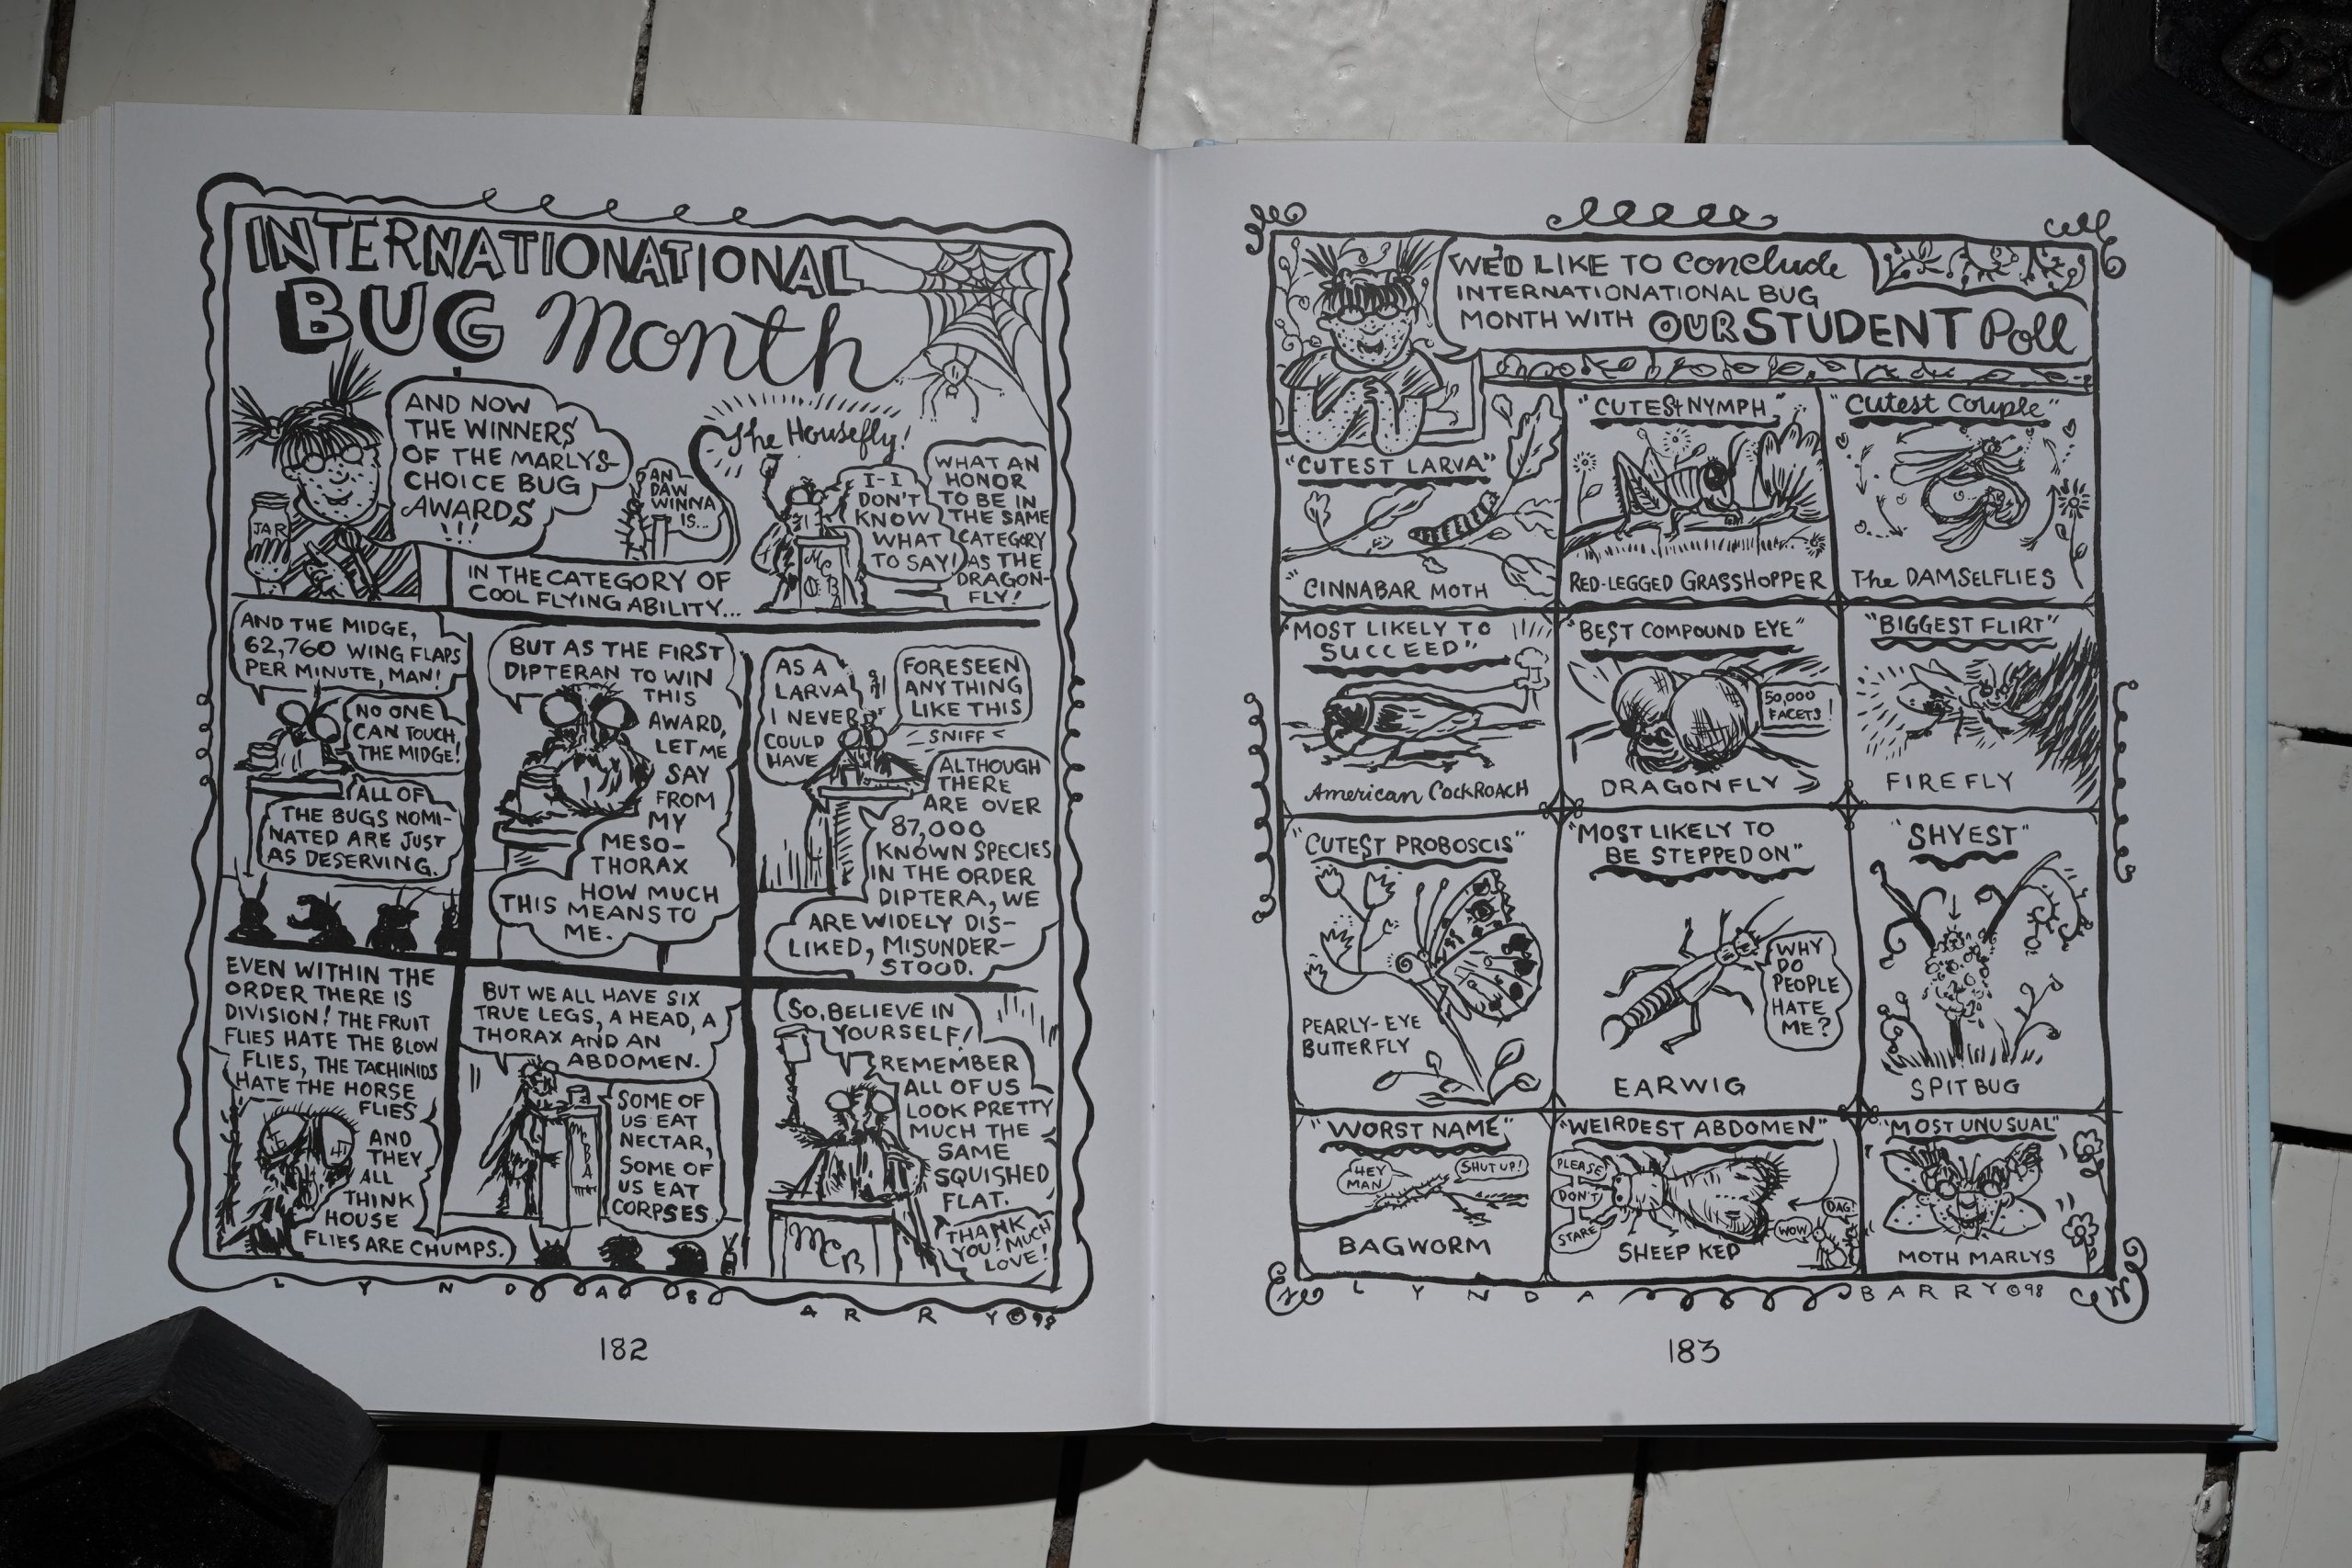 INTERNATIONATIONAL
BUG Month
AND NOW
THE WINNERS
OF THE MARLYS
CHOICE BUG
AWARDS
!!!
JAR
AN
DAW
WINNA
IS...
IN THE CATEGORY OF
COOL FLYING ABILITY...
The Housefly!
I-I
DON'T
KNOW
WHAT
TO SAY!
WHAT AN
HONOR
TO BE IN
THE SAME
CATEGORY
AS THE
DRAGON-
FLY!
AND THE MIDGE,
62,760 WING FLAPS
PER MINUTE, MAN!
NO ONE
CAN TOUCH
THE MIDGE!
ALL OF
THE BUGS NOMI-
NATED ARE JUST
AS DESERVING.
BUT AS THE FIRST
DIPTERAN TO WIN
THIS
AWARD,
LET ME
SAY
FROM
MY
MESO-
THORAX
HOW MUCH
THIS MEANS TO
ME.
AS A
LARVA
I NEVER
COULD
HAVE
FORESEEN
ANYTHING
LIKE THIS
SNIFF
ALTHOUGH
THERE
ARE OVER
87,000
KNOWN SPECIES
IN THE ORDER
DIPTERA, WE
ARE WIDELY DIS-
LIKED, MISUNDER-
STOOD.
EVEN WITHIN THE
ORDER THERE IS
DIVISION! THE FRUIT
FLIES HATE THE BLOW
FLIES, THE TACHINIDS
HATE THE HORSE
FLIES
AND
THEY
ALL
THINK
HOUSE
FLIES ARE CHUMPS.
BUT WE ALL HAVE SIX
TRUE LEGS, A HEAD, A
THORAX AND AN
ABDOMEN.
SOME OF
US EAT
NECTAR,
SOME OF
US EAT
CORPSES.
SO, BELIEVE IN
YOURSELF!
REMEMBER
ALL OF US
LOOK PRETTY
MUCH THE
SAME
SQUISHED
FLAT.
THANK
YOU! MUCH
LOVE!
MCB
LYNDA BARRY © 98
182
WE'D LIKE TO conclude
INTERNATIONATIONAL BUG
MONTH WITH OUR STUDENT Poll
"CUTEST LARVA"
CINNABAR MOTH
"CUTEST NYMPH"
RED-LEGGED GRASSHOPPER
"Cutest Couple"
The DAMSELFLIES
"MOST LIKELY TO
SUCCEED"
American COCKROACH
"BEST COMPOUND EYE"
50,000
FACETS!
DRAGONFLY
"BIGGEST FLIRT"
FIREFLY
"CUTEST PROBOSCIS"
PEARLY-EYE
BUTTERFLY
"MOST LIKELY TO
BE STEPPED ON"
WHY
DO
PEOPLE
HATE
ME?
EARWIG
"SHYEST"
SPIT BUG
"WORST NAME"
HEY
MAN
SHUT UP!
BAGWORM
"WEIRDEST ABDOMEN"
PLEASE
DON'T
STARE
WOW
DAG!
SHEEP KED
"MOST UNUSUAL"
MOTH MARLYS
LYNDA BARRY © 98
183